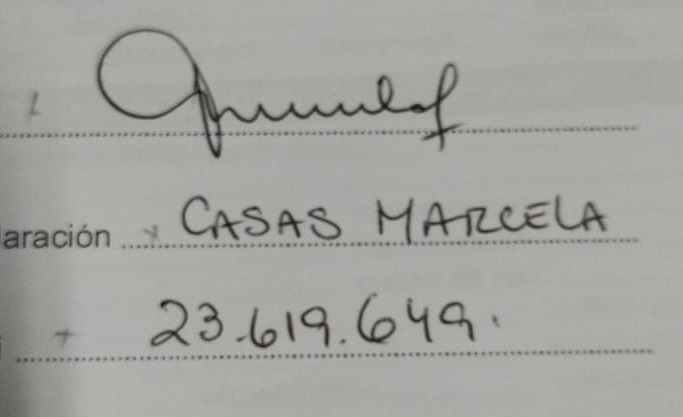 aración CASAS MARCELA
23.619.649.